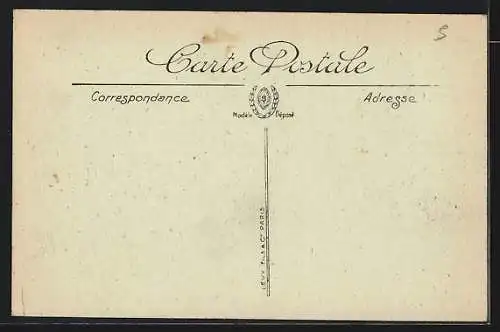 5
Carte Postale
Correspondance
Adresse
Modèle Déposé
LEVY FILS & Cie PARIS